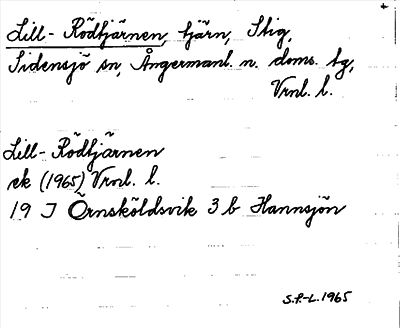 Lill-Rödtjärnen, tjärn, Stig,
Sidensjö sn, Ångermanl. n. doms. tg,
Vrnl. l.
Lill-Rödtjärnen
ek (1965) Vrnl. l.
19 J Örnsköldsvik 3 b Hannsjön
S.F.-L. 1965